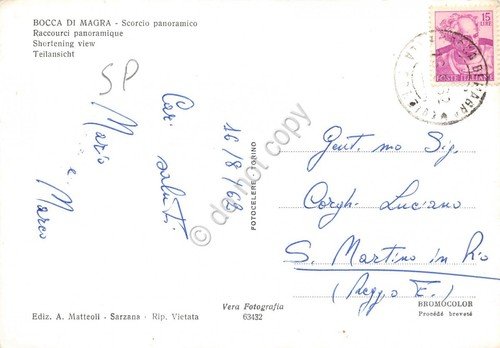 BOCCA DI MAGRA - Scorcio panoramico
Raccourci panoramique
Shortening view
Teilansicht
SP
16/8/63
Cari saluti
Mario
e Marco
FOTOCELERE - TORINO
15
LIRE
POSTE ITALIANE
Gent.mo Sig.
Corghi Luciano
S. Martino in Rio
(Reggio E.)
Vera Fotografia
63432
BROMOCOLOR
Procédé breveté
Ediz. A. Matteoli - Sarzana - Rip. Vietata
do not copy